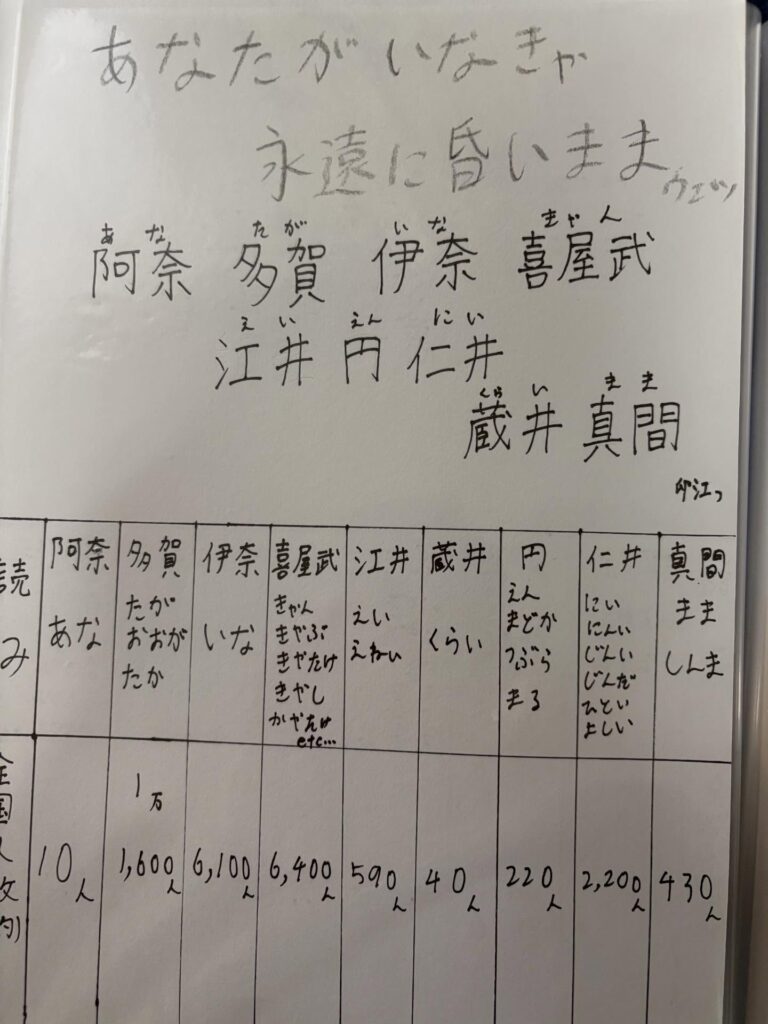 あなたがいなきゃ
永遠に昏いまま
ウエッツ
あな たが いな きゃん
阿奈 多賀 伊奈 喜屋武
えい えん にい
江井 円 仁井
くらい まま
蔵井 真間
読み 阿奈 多賀 伊奈 喜屋武 江井 蔵井 円 仁井 真間
あな
たが
おおが
たか
いな
きゃん
きやぶ
きやたけ
きやし
かやたけ
etc...
えい
えねい
くらい
えん
まどか
つぶら
まる
にい
にんい
じんい
じんだ
ひとい
よしい
まま
しんま
全国人数(約) 10人 1万1,600人 6,100人 6,400人 590人 40人 220人 2,200人 430人